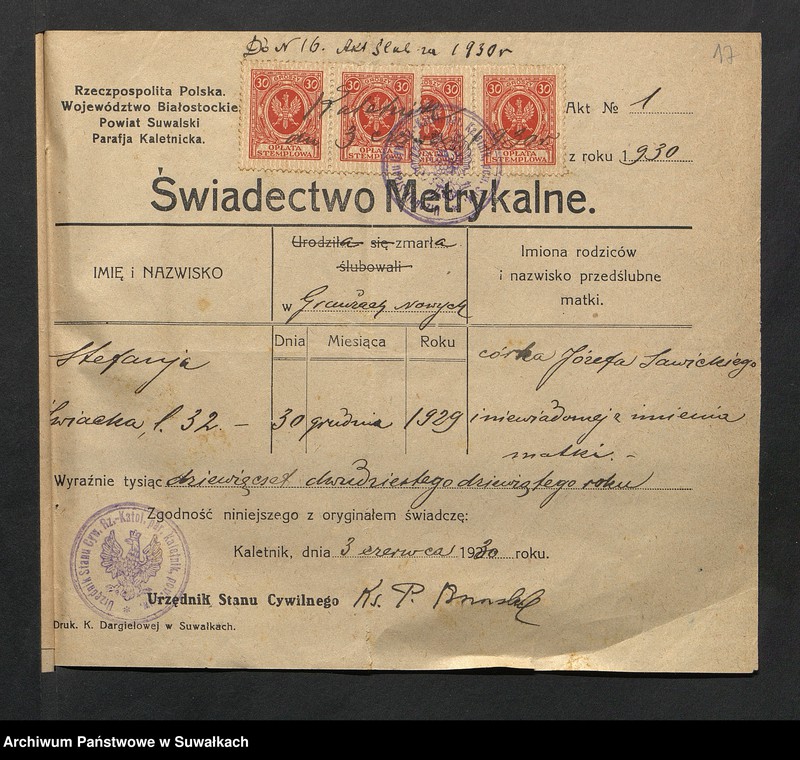 Do N 16. Akt Ślub za 1930 r
17
Rzeczpospolita Polska.
Województwo Białostockie
Powiat Suwalski
Parafja Kaletnicka.
30 GROSZY 30
30 GROSZY 30
30
30 GROSZY 30
OPŁATA STEMPLOWA
OPŁATA STEMPLOWA
OPŁATA STEMPLOWA
Kaletnik
dn. 3 czerwca 1930 r
Akt № 1
z roku 1930
Świadectwo Metrykalne.
IMIĘ i NAZWISKO
Urodziła się zmarła
ślubowali
w Graużach Nowych
Imiona rodziców
i nazwisko przedślubne
matki.
Dnia Miesiąca Roku
Stefanja
l. 32. –
30 grudnia 1929
córka Józefa Sawickiego
i niewiadomej z imienia
matki. –
Wyraźnie tysiąc dziewięćset dwudziestego dziewiątego roku
Zgodność niniejszego z oryginałem świadczę:
Kaletnik, dnia 3 czerwca 1930 roku.
Urzędnik Stanu Cyw. Rz.-Katol. par. kaletnik. pow.
Urzędnik Stanu Cywilnego Ks. P.
Druk. K. Dargielowej w Suwałkach.
Archiwum Państwowe w Suwałkach